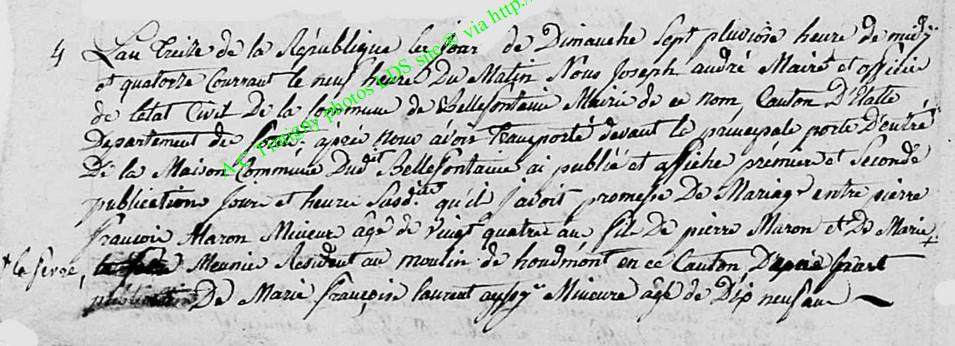 4 L'an treize de la République le jour de Dimanche sept pluviose heure de midy
et quatorze Courrant le neuf heure Du Matin Nous Joseph andré Maire et officié
de l'état Civil De la Commune de Bellefontaine Mairie de ce nom, Canton D'Etalle
Departement de après nous avoir transporté devant la principale porte D'entré
De la Maison Commune Dudet Bellefontaine ai publié et affiché prémier et Seconde
publication Jour et heure Susdite qu'il javoit promesse De Mariage entre pierre
françoise Maron Mineur âgé de vingt quatre an fil De pierre Maron et De Marie +
+ la ferge, Meunié Résident au moulin de houdmont en ce Canton D'
De Marie françoise laurent aussy Mineure âgé de Dix neuf an
A.G. photos LDS site via http:/